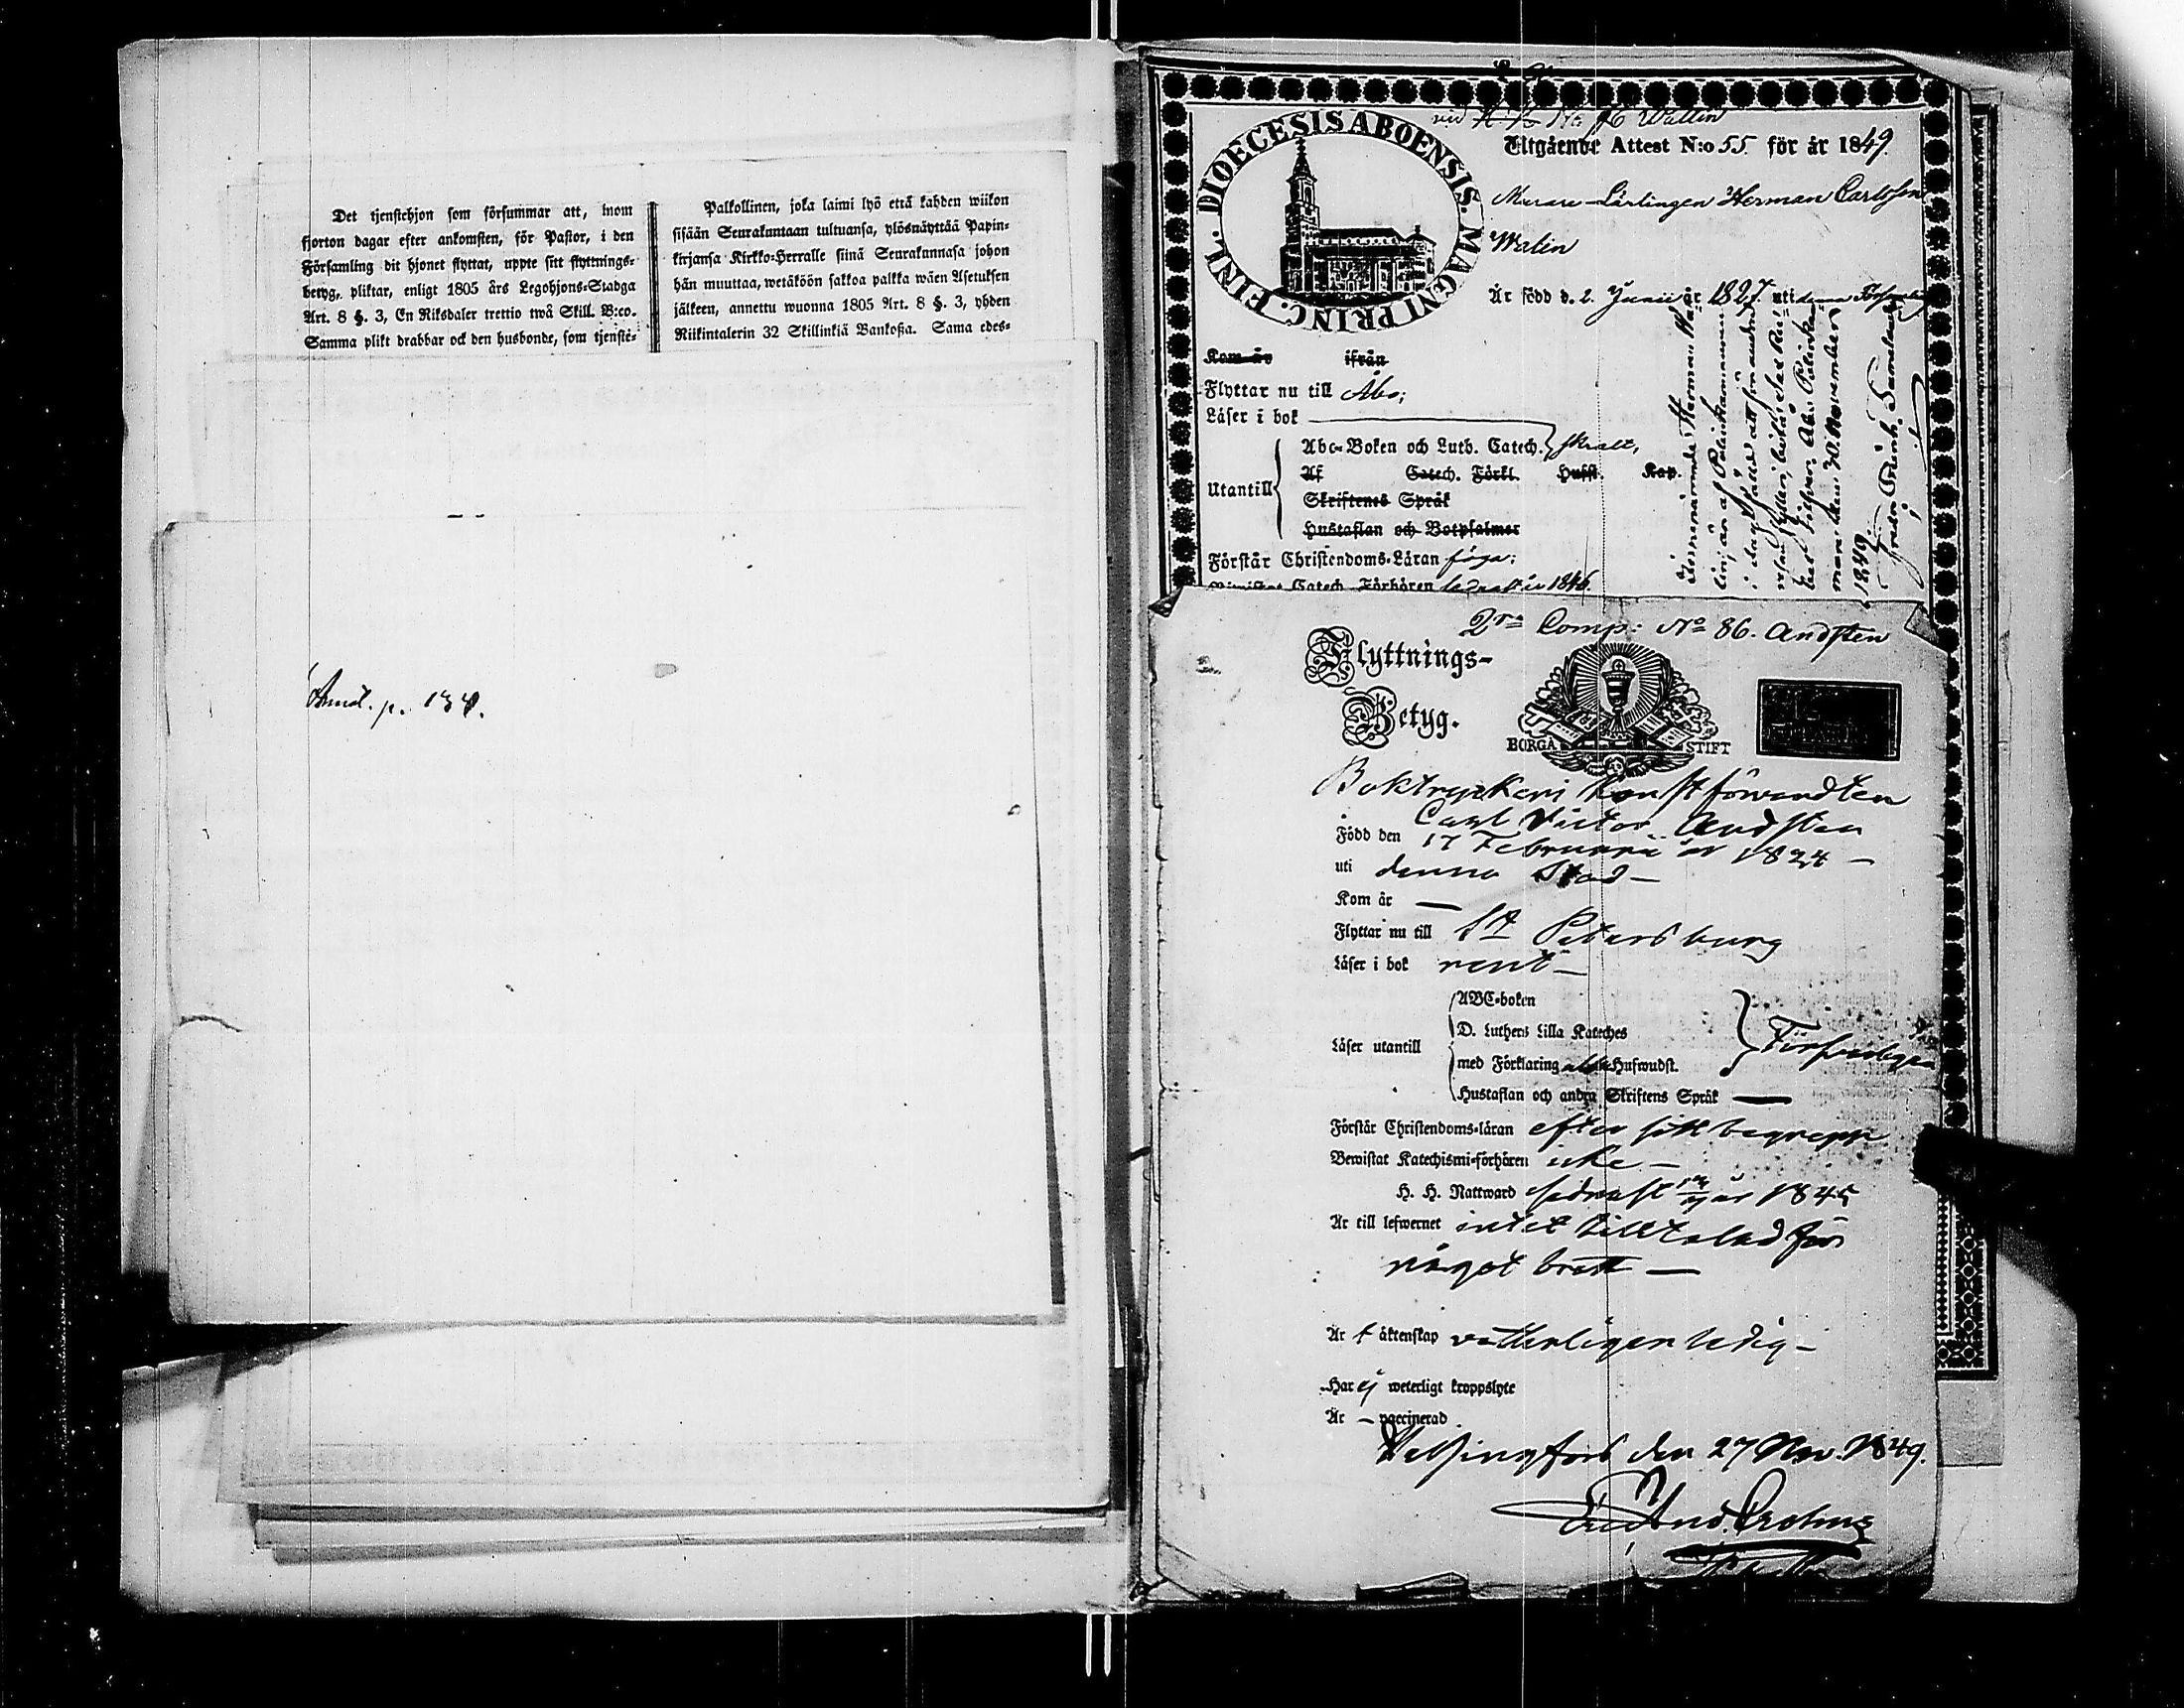 Det tjenstehjon som försummar att, inom
fjorton dagar efter ankomsten, för Pastor, i den
Församling dit hjonet flyttat, uppte sitt flyttnings-
betyg, pliktar, enligt 1805 års Legohjons-Stadga
Art. 8 §. 3, En Riksdaler trettio twå Skill. B:co.
Samma plikt drabbar ock den husbonde, som tjenste-
Palkollinen, joka laimi lyö että kahden wiikon
sisään Seurakuntaan tultuansa, ylösnäyttää Papin-
kirjansa Kirkko-Herralle siinä Seurakunnasa johon
hän muuttaa, wetäköön sakkoa palkka wäen Asetuksen
jälkeen, annettu wuonna 1805 Art. 8 §. 3, yhden
Riikintalerin 32 Skillinkiä Bankosa. Sama edes-
p. 138.
DIOECESIS ABOENSIS. MAGNI PRINC. FINL.
Wallin
Utgående Attest N:o 55 för år 1849.
Murare-Lärlingen Herman Carlsson
Walin
Är född d. 2 Junii år 1827 uti denna Församling
Kom år ifrån
Flyttar nu till Åbo;
Läser i bok
Abc-Boken och Luth. Catech. skralt,
Utantill
Af Catech. Förkl. Hufst. Kap.
Skriftenes Språk
Hustaflan och Botpsalmer
Förstår Christendoms-Läran föga;
Bewistat Catech. Förhören sednast år 1846.
Ofvannämnde Herman
af Polis kammaren
i dag
Åbo Polis
den 30 November
1849
2ra Comp: No 86. Andsten
Flyttnings-
Betyg.
BORGÅ STIFT
Boktryckeri Konstförvandten
Carl Victor Andsten
Född den 17 Februarii år 1824 —
uti denna Stad —
Kom år —
Flyttar nu till St Petersburg
Läser i bok rent —
ABC-boken
D. Luthers Lilla Kateches
Läser utantill
med Förklaring alla Hufwudst.
Hustaflan och andra Skriftens Språk —
Förstår Christendoms-läran efter sitt begrepp
Bewistat Katechismi-förhören icke —
H. H. Nattward sednast år 1845
Är till lefwernet intet tilltalad för
något brott —
Är t äktenskap vitterligen ledig —
Har ej weterligt kroppslyte
Är — vaccinerad
Helsingfors den 27 Nov. 1849.